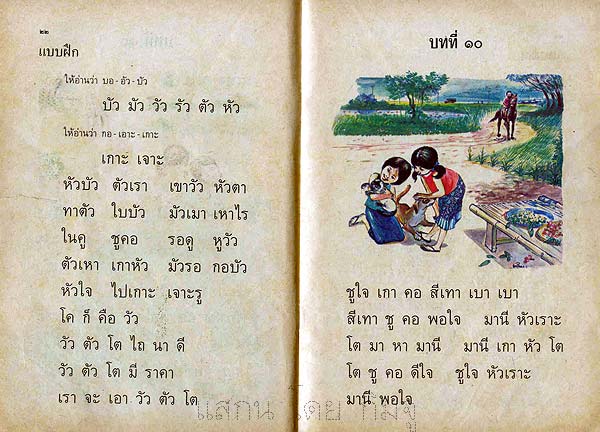 ๒๒
แบบฝึก
ให้อ่านว่า บอ - อัว - บัว
บัว มัว วัว รัว ตัว หัว
ให้อ่านว่า กอ - เอาะ - เกาะ
เกาะ เจาะ
หัวบัว ตัวเรา เขาวัว หัวตา
ทาตัว ใบบัว มัวเมา เหาไร
ในคู ชูคอ รอดู หูวัว
ตัวเหา เกาหัว มัวรอ กอบัว
หัวใจ ไปเกาะ เจาะรู
โค ก็ คือ วัว
วัว ตัว โต ไถ นา ดี
วัว ตัว โต มี ราคา
เรา จะ เอา วัว ตัว โต
บทที่ ๑๐
ชูใจ เกา คอ สีเทา เบา เบา
สีเทา ชู คอ พอใจ มานี หัวเราะ
โต มา หา มานี มานี เกา หัว โต
โต ชู คอ ดีใจ ชูใจ หัวเราะ
มานี พอใจ
แสกน โดย